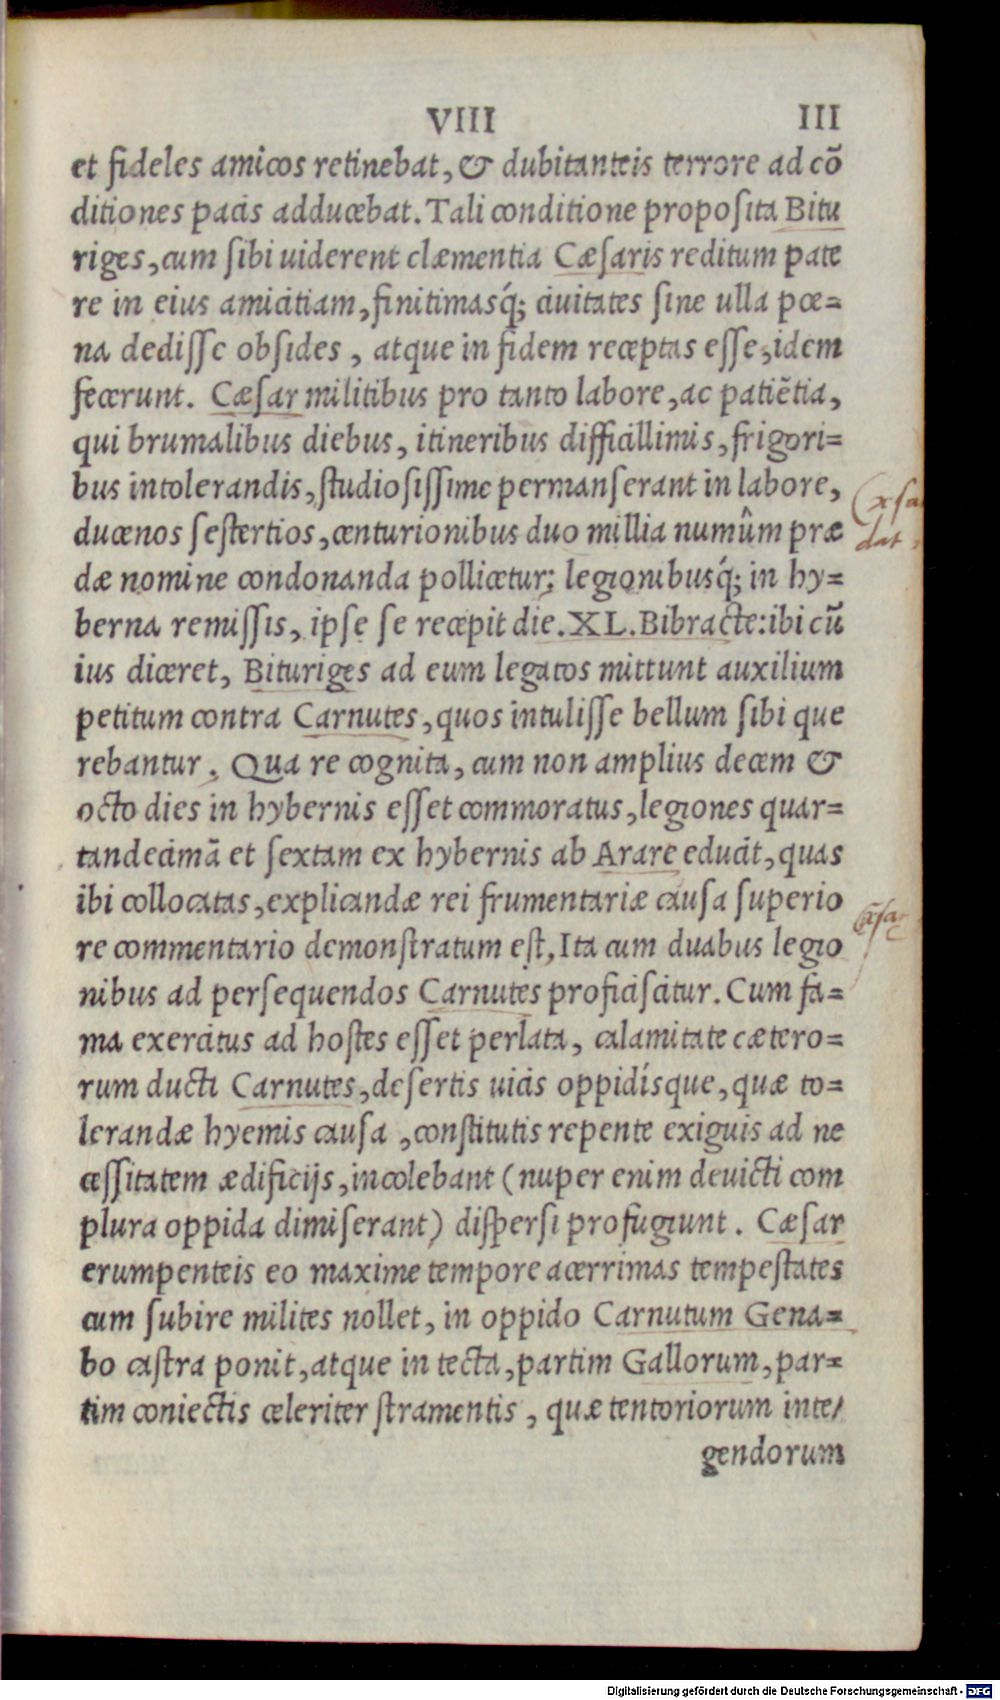 VIII III
et fideles amicos retinebat, & dubitanteis terrore ad cõ
ditiones pacis adducebat. Tali conditione proposita Bitu
riges, cum sibi uiderent clæmentia Cæsaris reditum pate
re in eius amicitiam, finitimasq́; ciuitates sine ulla pœ=
na dedisse obsides, atque in fidem receptas esse, idem
fecerunt. Cæsar militibus pro tanto labore, ac patiẽtia,
qui brumalibus diebus, itineribus difficillimis, frigori=
bus intolerandis, studiosissime permanserant in labore,
ducenos sestertios, centurionibus duo millia numûm præ
dæ nomine condonanda pollicetur; legionibusq́; in hy=
berna remissis, ipse se recepit die. XL. Bibracte: ibi cũ
ius diceret, Bituriges ad eum legatos mittunt auxilium
petitum contra Carnutes, quos intulisse bellum sibi que
rebantur. Qua re cognita, cum non amplius decem &
octo dies in hybernis esset commoratus, legiones quar=
tandecimã et sextam ex hybernis ab Arare educit, quas
ibi collocatas, explicandæ rei frumentariæ causa superio
re commentario demonstratum est, Ita cum duabus legio
nibus ad persequendos Carnutes proficiscitur. Cum fa=
ma exercitus ad hostes esset perlata, calamitate cætero=
rum ducti Carnutes, desertis uicis oppidísque, quæ to=
lerandæ hyemis causa, constitutis repente exiguis ad ne
cessitatem ædificijs, incolebant (nuper enim deuicti com
plura oppida dimiserant) dispersi profugiunt. Cæsar
erumpenteis eo maxime tempore acerrimas tempestates
cum subire milites nollet, in oppido Carnutum Gena=
bo castra ponit, atque in tecta, partim Gallorum, par=
tim coniectis celeriter stramentis, quæ tentoriorum inte/
gendorum
Digitalisierung gefördert durch die Deutsche Forschungsgemeinschaft - DFG